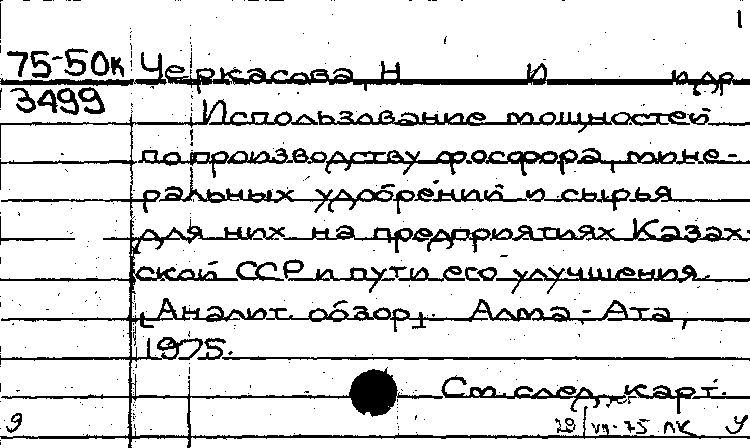 1
75-50к Черкасова, Н И и др.
3499
Использование мощностей
по производству фосфора, мине-
ральных удобрений и сырья
для них на предприятиях Казах-
ской ССР и пути его улучшения.
[Аналит. обзор]. Алма-Ата,
1975.
См. след. карт.
9 29/VII-75 ЛК У